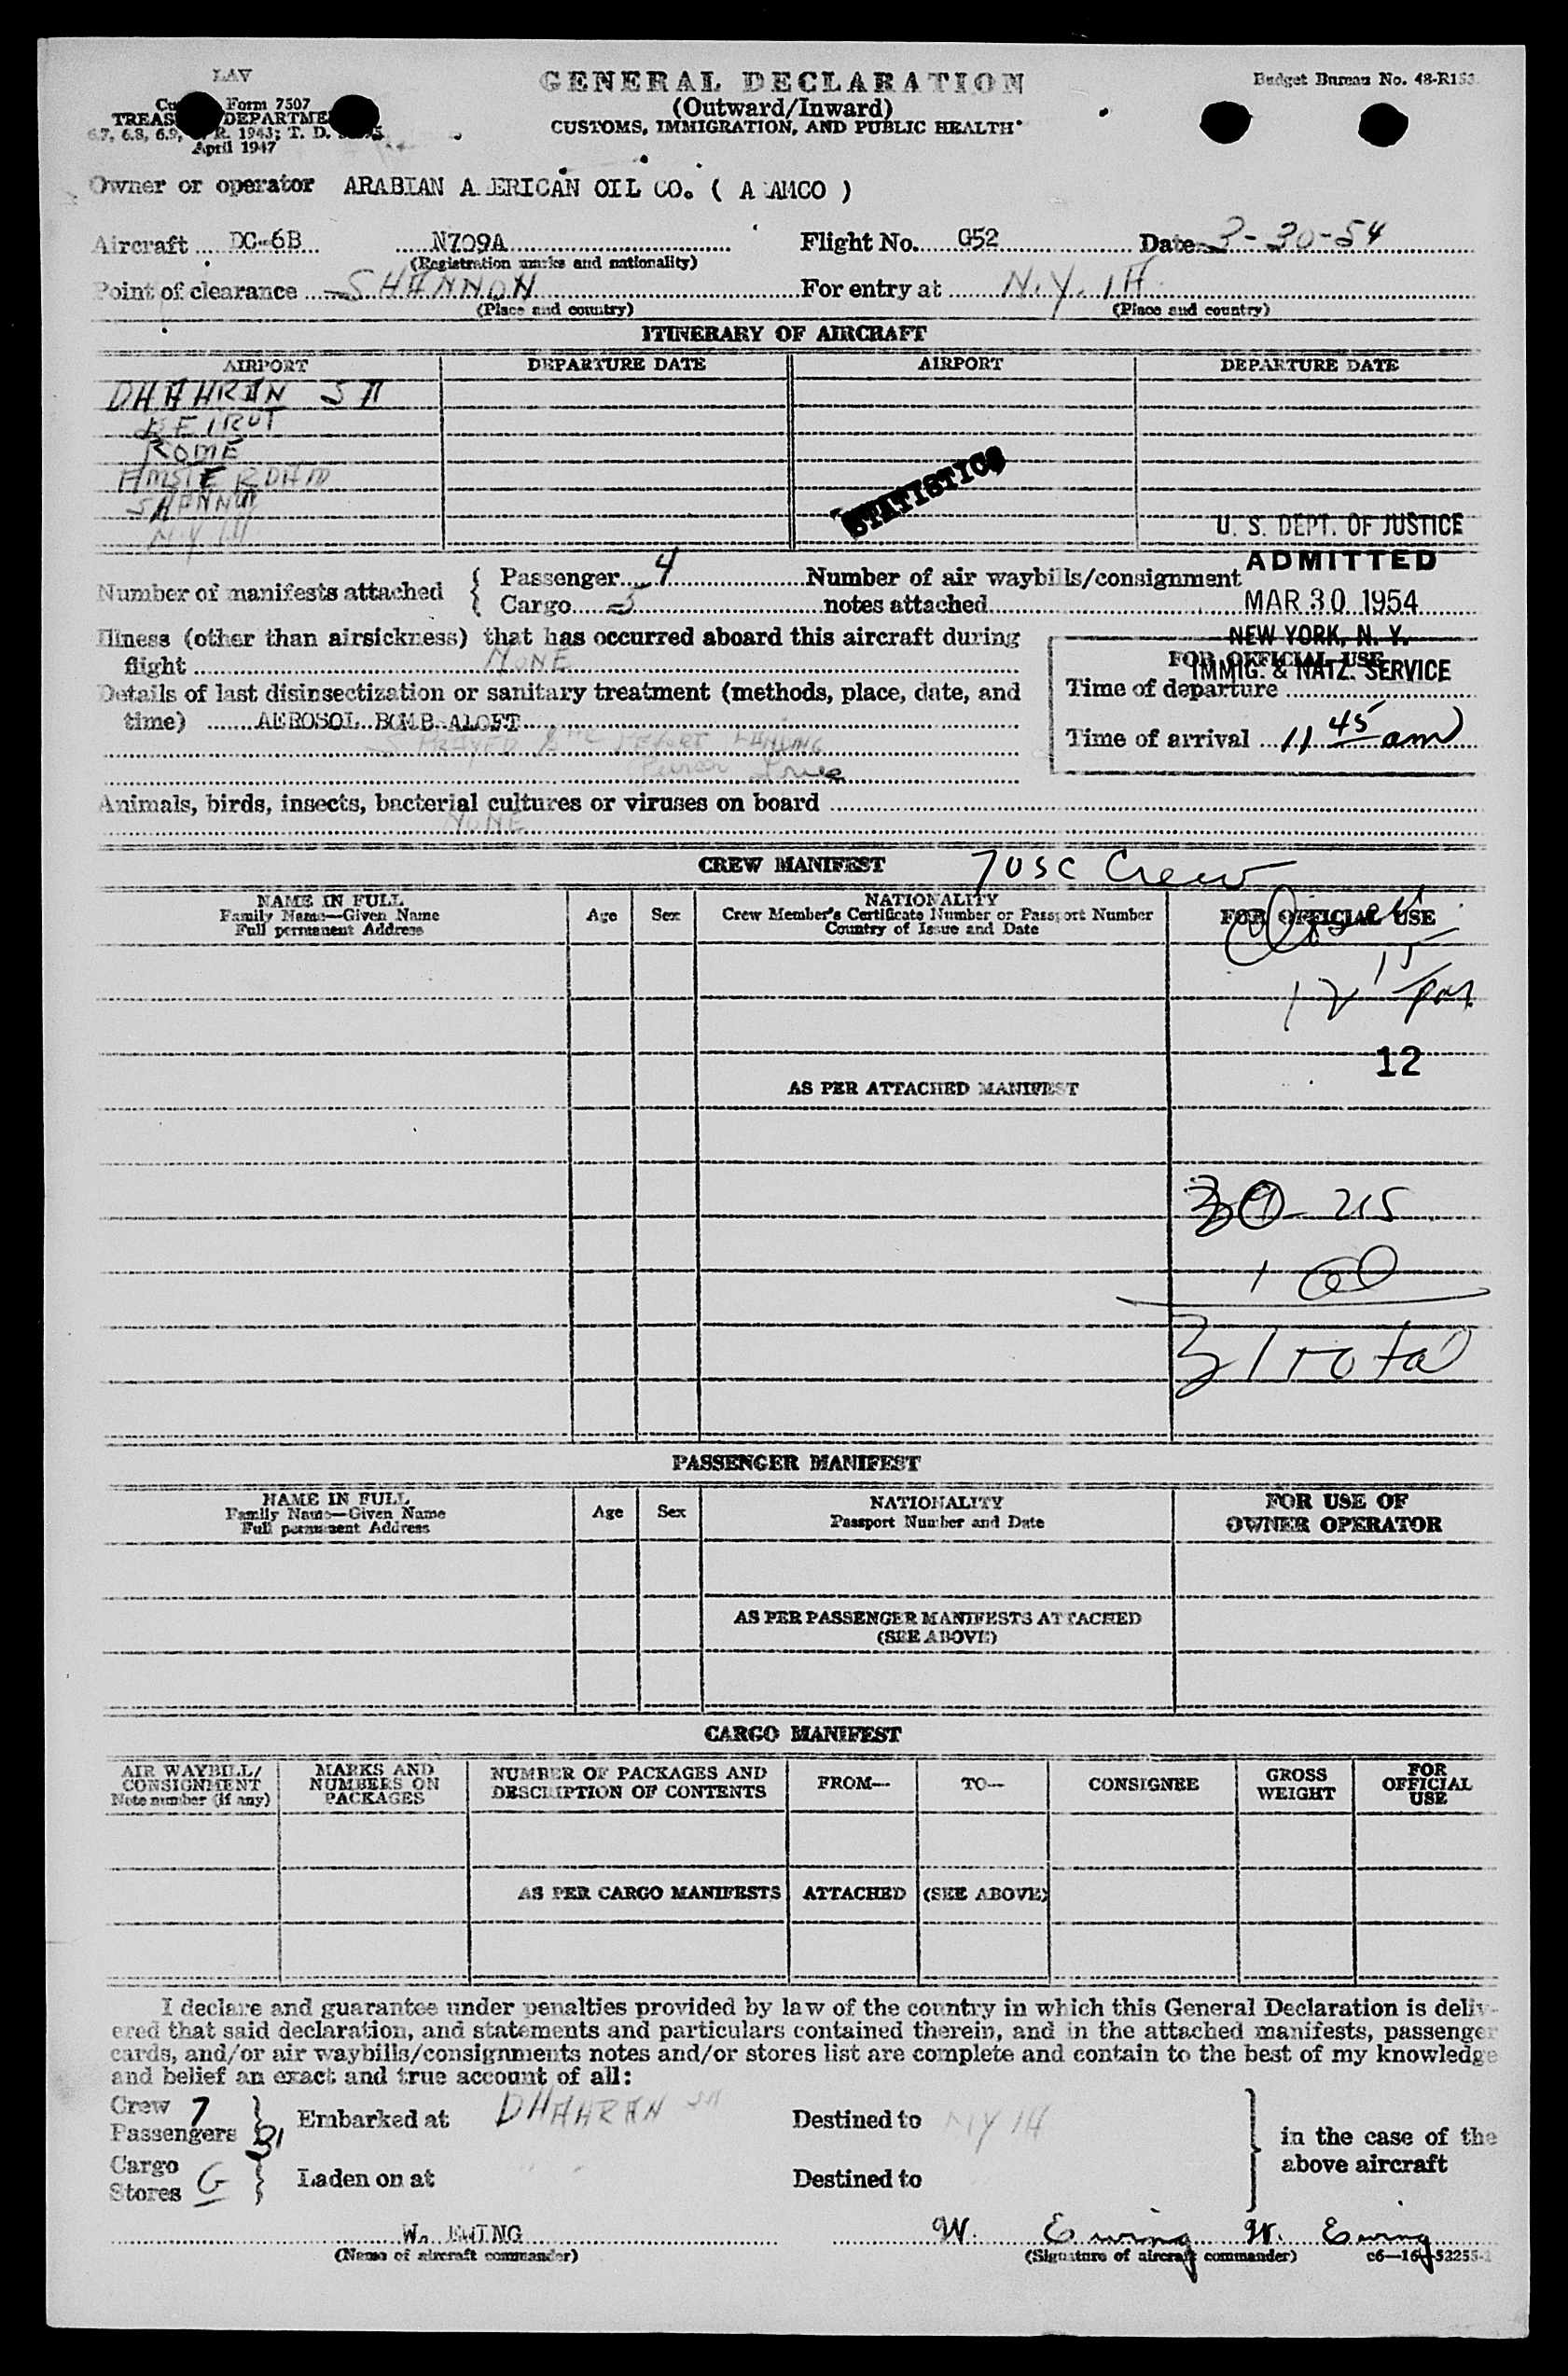 LAV
GENERAL DECLARATION
(Outward/Inward)
CUSTOMS, IMMIGRATION, AND PUBLIC HEALTH
Budget Bureau No. 48-R153
Form 7507
April 1947
Owner or operator ARABIAN A ERICAN OIL CO. ( A AMCO )
Aircraft DC-6B N709A Flight No. G52 Date 3-30-54
(Registration marks and nationality)
Point of clearance SHANNON For entry at N.Y. IA
(Place and country) (Place and country)
ITINERARY OF AIRCRAFT
AIRPORT DEPARTURE DATE AIRPORT DEPARTURE DATE
DHAHRAN SA
BEIRUT
ROME
AMSTERDAM
SHANNON
N.Y. IA
STATISTICS
U. S. DEPT. OF JUSTICE
ADMITTED
MAR 30 1954
NEW YORK, N. Y.
IMMIG. & NATZ. SERVICE
Number of manifests attached { Passenger 4 Number of air waybills/consignment
Cargo 5 notes attached
Illness (other than airsickness) that has occurred aboard this aircraft during
flight NONE
FOR OFFICIAL USE
Details of last disinsectization or sanitary treatment (methods, place, date, and
time) AEROSOL BOMB ALOFT
SPRAYED BEFORE LANDING
Time of departure
Time of arrival 11 45 am
Animals, birds, insects, bacterial cultures or viruses on board
NONE
CREW MANIFEST 7 USC Crew
NAME IN FULL
Family Name—Given Name
Full permanent Address
Age Sex
NATIONALITY
Crew Member's Certificate Number or Passport Number
Country of Issue and Date
FOR OFFICIAL USE
12 15 pm
12
AS PER ATTACHED MANIFEST
30 - USC
1
31 Total
PASSENGER MANIFEST
NAME IN FULL
Family Name—Given Name
Full permanent Address
Age Sex
NATIONALITY
Passport Number and Date
FOR USE OF
OWNER OPERATOR
AS PER PASSENGER MANIFESTS ATTACHED
(SEE ABOVE)
CARGO MANIFEST
AIR WAYBILL/
CONSIGNMENT
Note number (if any)
MARKS AND
NUMBERS ON
PACKAGES
NUMBER OF PACKAGES AND
DESCRIPTION OF CONTENTS
FROM— TO— CONSIGNEE
GROSS
WEIGHT
FOR
OFFICIAL
USE
AS PER CARGO MANIFESTS ATTACHED (SEE ABOVE)
I declare and guarantee under penalties provided by law of the country in which this General Declaration is deliv-
ered that said declaration, and statements and particulars contained therein, and in the attached manifests, passenger
cards, and/or air waybills/consignments notes and/or stores list are complete and contain to the best of my knowledge
and belief an exact and true account of all:
Crew 7
Passengers 31 } Embarked at DHAHRAN SA Destined to NY IA
in the case of the
above aircraft
Cargo
Stores G } Laden on at Destined to
W. EWING W. Ewing W. Ewing
(Name of aircraft commander) (Signature of aircraft commander) c6—16—53255-1